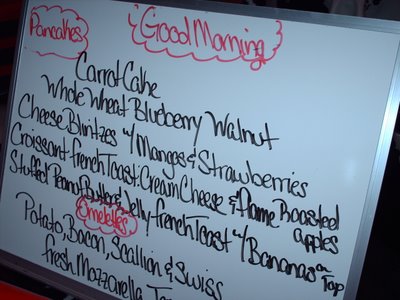 Pancakes
Good Morning
Carrot Cake
Whole Wheat Blueberry Walnut
Cheese Blintzes w/ Manges & Strawberries
Croissant French Toast: Cream Cheese & Flame Roasted apples
Stuffed Peanut Butter & Jelly French Toast w/ Bananas on Top
Omelettes
Potato, Bacon, Scallion & Swiss
Fresh Mozzarella